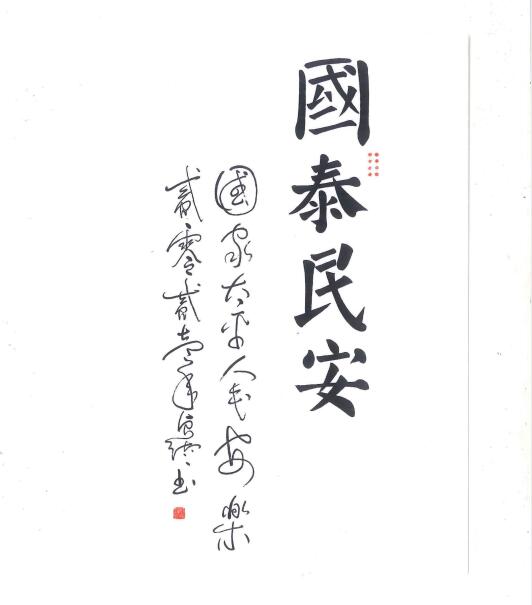 國泰民安
國家太平人民安樂
貳零貳壹年